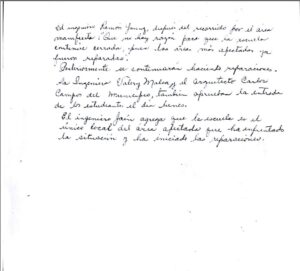 El ingeniero Ramón Yanez, después del recorrido por el área
manifiesta: Que no hay razón para que la escuela
continúe cerrada, pues las áreas más afectadas ya
fueron reparadas.
Posteriormente se continuarán haciendo reparaciones.
La Ingeniero y el Arquitecto Carlos
Campos del Municipio, también aprueban la entrada
de los estudiantes el día lunes.
El ingeniero agrega que la escuela es el
único local del área afectada que ha enfrentado
la situación y ha iniciado las reparaciones.